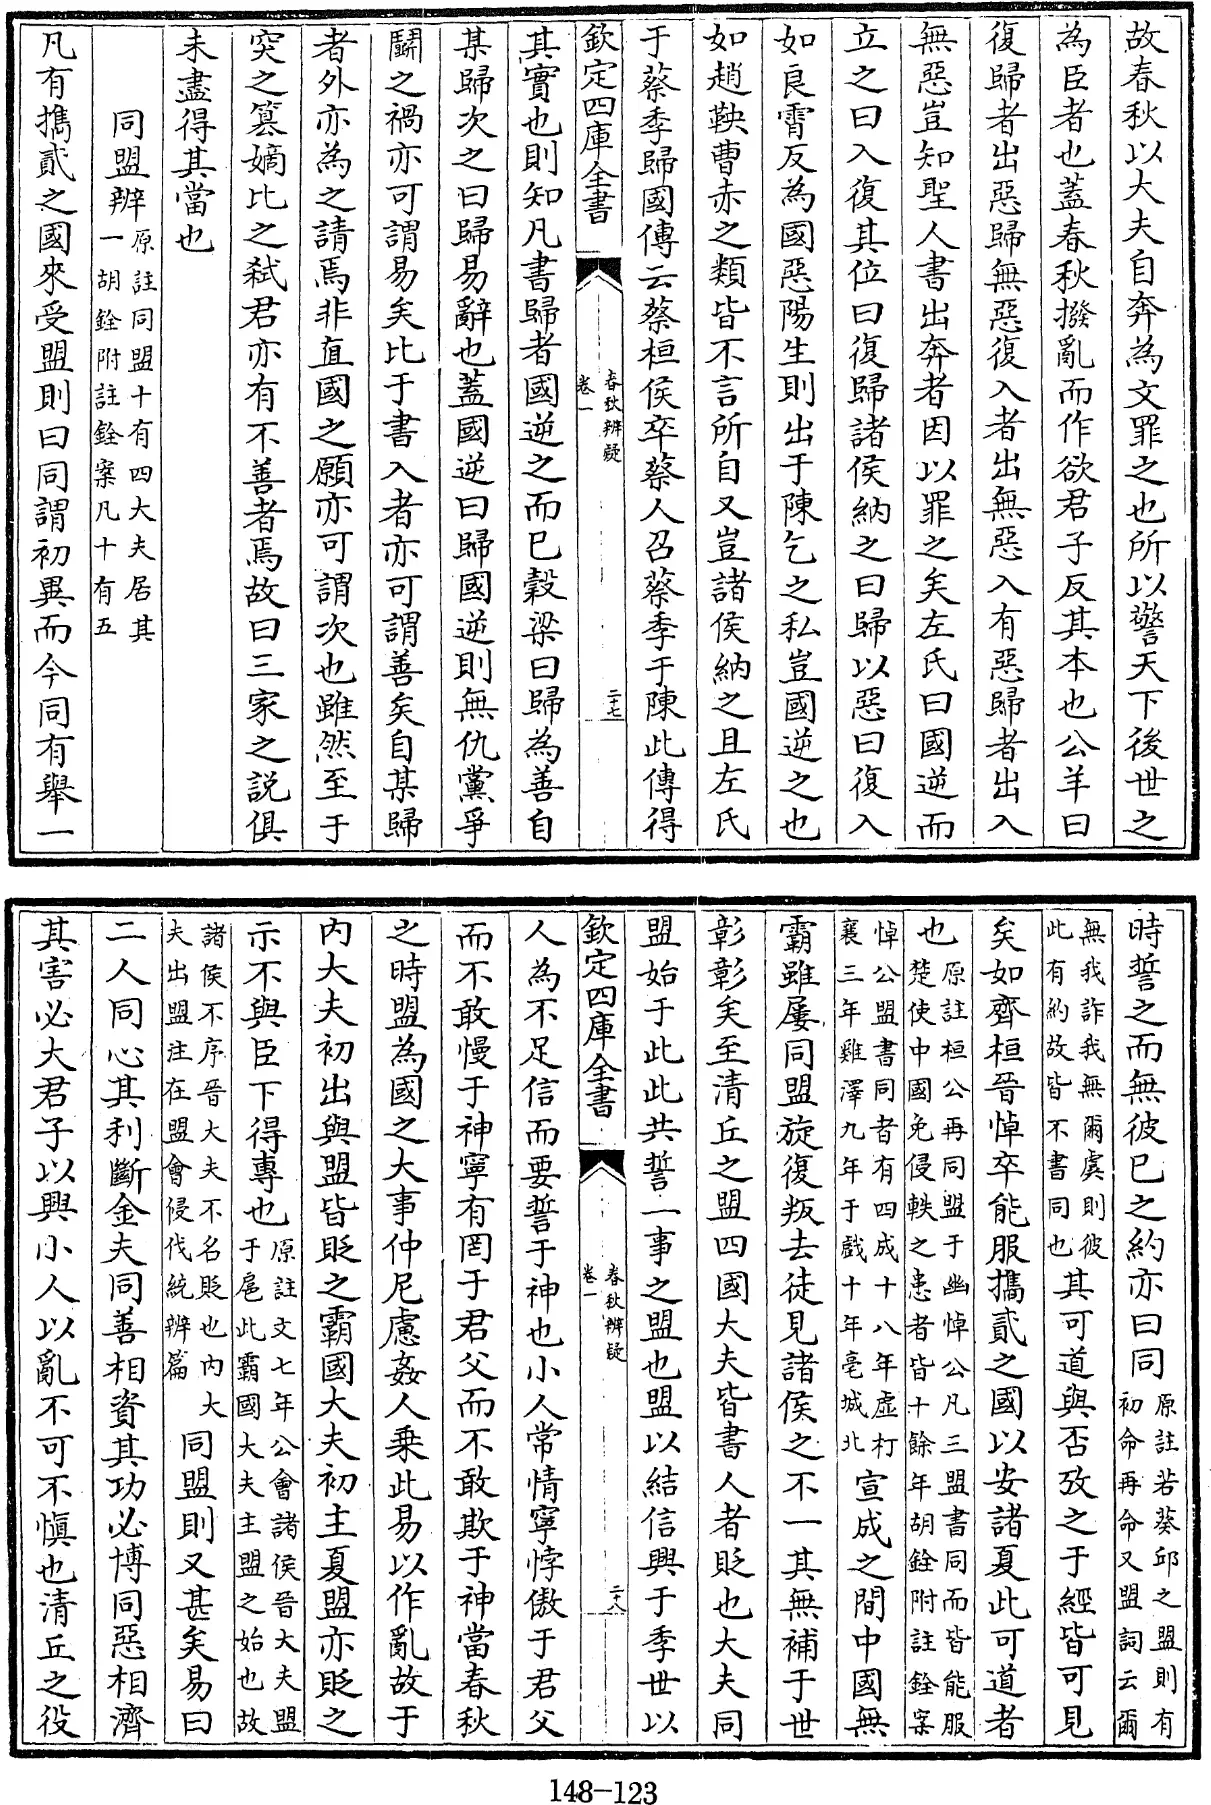 故春秋以大夫自奔為文罪之也所以警天下後世之
為臣者也蓋春秋撥亂而作欲君子反其本也公羊曰
復歸者出惡歸無惡復入者出無惡入有惡歸者出入
無惡豈知聖人書出奔者因以罪之矣左氏曰國逆而
立之曰入復其位曰復歸諸侯納之曰歸以惡曰復入
如良霄反為國惡陽生則出于陳乞之私豈國逆之也
如趙鞅曹赤之類皆不言所自又豈諸侯納之且左氏
于蔡季歸國傳云蔡桓侯卒蔡人召蔡季于陳此傳得
欽定四庫全書
春秋辨疑
卷一
二十七
其實也則知凡書歸者國逆之而已穀梁曰歸為善自
某歸次之曰歸易辭也蓋國逆曰歸國逆則無仇黨爭
鬭之禍亦可謂易矣比于書入者亦可謂善矣自某歸
者外亦為之請焉非直國之願亦可謂次也雖然至于
突之簒嫡比之弑君亦有不善者焉故曰三家之説俱
未盡得其當也
同盟辨一
原註同盟十有四大夫居其
胡銓附註銓案凡十有五
凡有攜貳之國來受盟則曰同謂初異而今同有舉一
時誓之而無彼已之約亦曰同
原註若葵邱之盟則有
初命再命又盟詞云爾
無我詐我無爾虞則彼
此有約故皆不書同也
其可道與否攷之于經皆可見
矣如齊桓晉悼卒能服攜貳之國以安諸夏此可道者
也
原註桓公再同盟于幽悼公凡三盟書同而皆能服
楚使中國免侵軼之患者皆十餘年胡銓附註銓案
悼公盟書同者有四成十八年虛朾
襄三年雞澤九年于戲十年亳城北
宣成之間中國無
霸雖屢同盟旋復叛去徒見諸侯之不一其無補于世
彰彰矣至清丘之盟四國大夫皆書人者貶也大夫同
盟始于此此共誓一事之盟也盟以結信興于季世以
欽定四庫全書
春秋辨疑
卷一
二十八
人為不足信而要誓于神也小人常情寧悖傲于君父
而不敢慢于神寧有罔于君父而不敢欺于神當春秋
之時盟為國之大事仲尼慮姦人乗此易以作亂故于
内大夫初出與盟皆貶之霸國大夫初主夏盟亦貶之
示不與臣下得專也
原註文七年公會諸侯晉大夫盟
于扈此霸國大夫主盟之始也故
諸侯不序晉大夫不名貶也内大
夫出盟注在盟會侵伐統辨篇
同盟則又甚矣易曰
二人同心其利斷金夫同善相資其功必博同惡相濟
其害必大君子以興小人以亂不可不愼也清丘之役
148-123